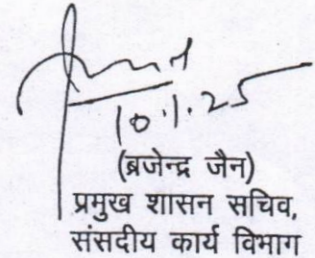 10.1.25
(ब्रजेन्द्र जैन)
प्रमुख शासन सचिव,
संसदीय कार्य विभाग